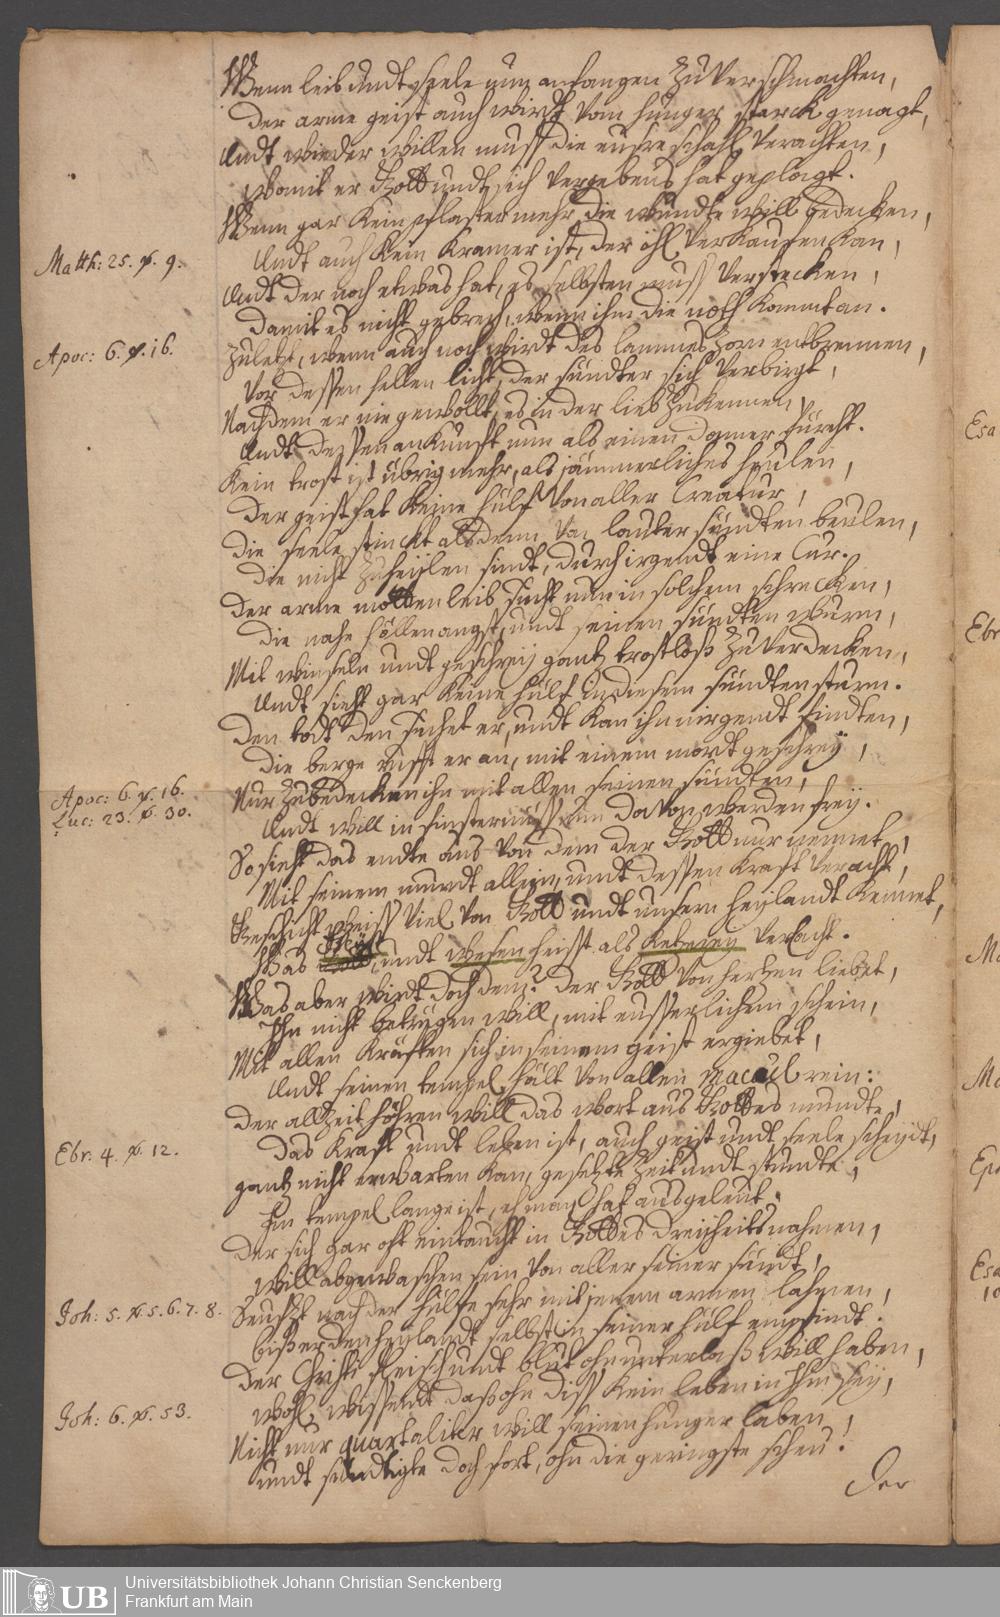 Wenn leib undt seele nun anfangen zu verschmachten,
Der arme geist auch wirdt vom hunger starck genagt,
Undt wieder willen muss die eusre schahl verachten,
Womit er Gott undt sich vergebens hat geplagt.
Wenn gar kein pflaster mehr die wundte will bedecken,
Undt auch kein Kramer ist, der öhl verkauffen kan,
Matth: 25. v. 9.
Undt der noch etwas hat, es selbsten muss verstecken,
Damit es nicht gebrech, wenn ihm die noth kommt an.
Apoc: 6. v. 16.
Zuletzt, wenn auch noch wirdt des lammes zorn entbrennen,
Vor dessen hellen licht, der sündter sich verbirgt,
Nachdem er nie gewollt, es in der lieb zu kennen,
Undt dessen ankunfft nun als einen donner fürcht.
Kein trost ist übrig mehr, als jämmerliches heulen,
Der geist hat keine hülf von aller Creatur,
Die seele stinckt alsdenn von lauter sündten beulen,
Die nicht zu heijlen sindt, durch irgendt eine Cur.
Der arme motten leib sucht nun in solchem schrecken,
Die nahe höllen angst, undt seinen sündten wurm,
Mit winseln undt geschreij gantz trostloß zu verdecken,
Undt sieht gar keine hülf in diesem sündten sturm.
Den todt den suchet er, undt kan ihn nirgendt findten,
Die berge rufft er an, mit einem mordt geschreij,
Apoc: 6. v. 16.
Luc: 23. v. 30.
Nur zu bedecken ihn mit allen seinen sündten,
Undt will in finsternüss nun davon werden freij.
So sieht das endte aus von dem der Gott nur nennet,
Mit seinem mundt allein, undt dessen Krafft veracht,
Geschicht weiss viel von Gott undt unsern heijlandt kennet,
Was undt wesen heisst als Ketzereij verlacht.
Was aber wirdt doch dem? der Gott von hertzen liebet,
Ihn nicht betrügen will, mit eusserlichem schein,
Mit allen Kräfften sich in seinem geist ergiebet,
Undt seinen tempel hält von allen macul rein:
Der allzeit höhren will das wort aus Gottes mundte,
Das Krafft undt leben ist, auch geist undt seele scheijdt,
Ebr: 4. v. 12.
gantz nicht erwarten kan, gesetzte zeit undt stundte,
Im tempel lange ist, eh man hat ausgeleut.
Der sich gar oft eintaucht in Gottes dreijheits nahmen,
Will abgewaschen sein von aller seiner sündt,
Joh: 5. v. 5. 6. 7. 8.
Seuftzt nach der hülffe sehr mit jenem armen lahmen,
biß er den heijlandt selbst in seiner hülf empfindt.
Der Christi fleisch undt blut ohn unterlaß will haben,
Wohl wissendt daß ohn diss kein leben in ihm seij,
Joh: 6. v. 53.
Nicht nur quartaliter will seinen hunger laben,
undt sündtigte doch fort, ohn die geringste scheu!
Der
Esa
Ebr
Esa
10
UB
Universitätsbibliothek Johann Christian Senckenberg
Frankfurt am Main